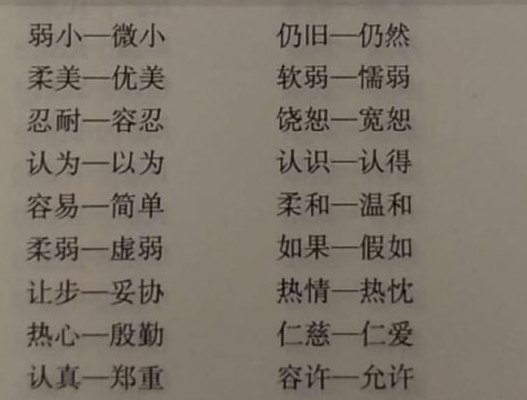 弱小—微小 仍旧—仍然
柔美—优美 软弱—懦弱
忍耐—容忍 饶恕—宽恕
认为—以为 认识—认得
容易—简单 柔和—温和
柔弱—虚弱 如果—假如
让步—妥协 热情—热忱
热心—殷勤 仁慈—仁爱
认真—郑重 容许—允许